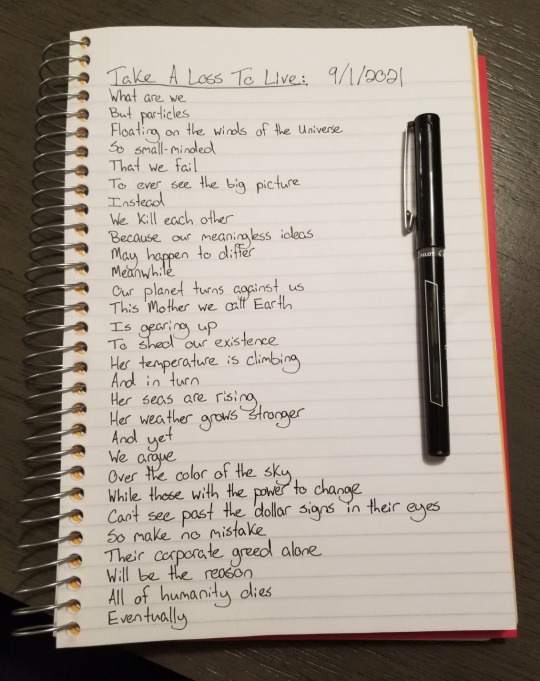 Take A Loss To Live: 9/1/2021
What are we
But particles
Floating on the winds of the Universe
So small-minded
That we fail
To ever see the big picture
Instead
We kill each other
Because our meaningless ideas
May happen to differ
Meanwhile
Our planet turns against us
This Mother we call Earth
Is gearing up
To shed our existence
Her temperature is climbing
And in turn
Her seas are rising
Her weather grows stronger
And yet
We argue
Over the color of the sky
While those with the power to change
Can't see past the dollar signs in their eyes
So make no mistake
Their corporate greed alone
Will be the reason
All of humanity dies
Eventually
PILOT